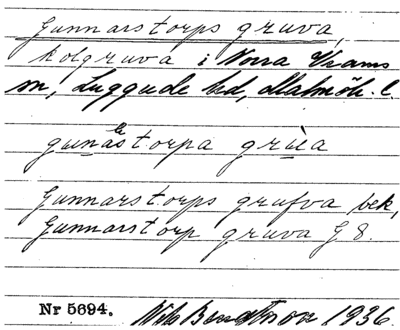 Gunnarstorps gruva,
kolgruva i Norra Vrams
sn, Luggude hd, Malmöh. l.
gunastorpa gruèa
Gunnarstorps grufva bek,
Gunnarstorp gruva G 8.
Nr 5694. Nils Bengtsson 1936